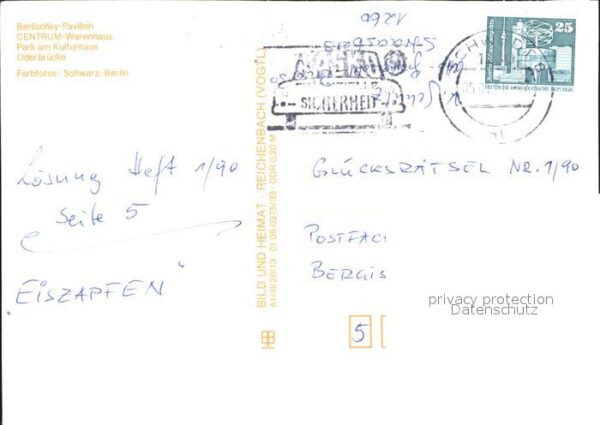 Berlischky-Pavillon
CENTRUM-Warenhaus
Park am Kulturhaus
Oderbrücke
Farbfotos: Schwarz, Berlin
1260
25
DEUTSCHE DEMOKRATISCHE REPUBLIK
SICHERHEIT
Lösung Heft 1/90
Seite 5
"EISZAPFEN"
BILD UND HEIMAT · REICHENBACH (VOGTL
A1/III/26/13 01 05 0375/33 · DDR 0,20 M
GLÜCKSRÄTSEL NR. 1/90
POSTFAC
BERGIS
privacy protection
Datenschutz
5